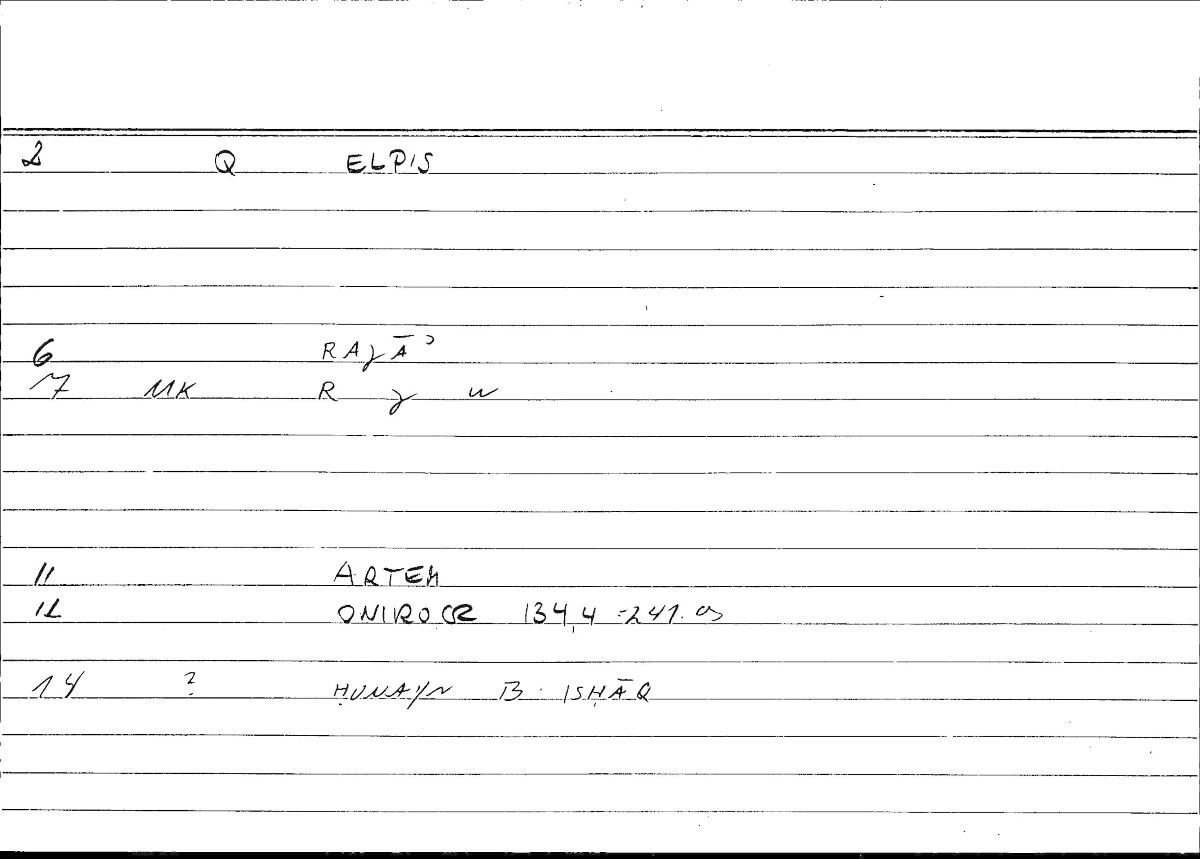 2 Q ELPIS
6 RAǧĀʾ
7 MK R ǧ w
11 ARTEM
12 ONIROCR 134,4 = 241.
14 ? ḤUNAYN B. ISḤĀQ